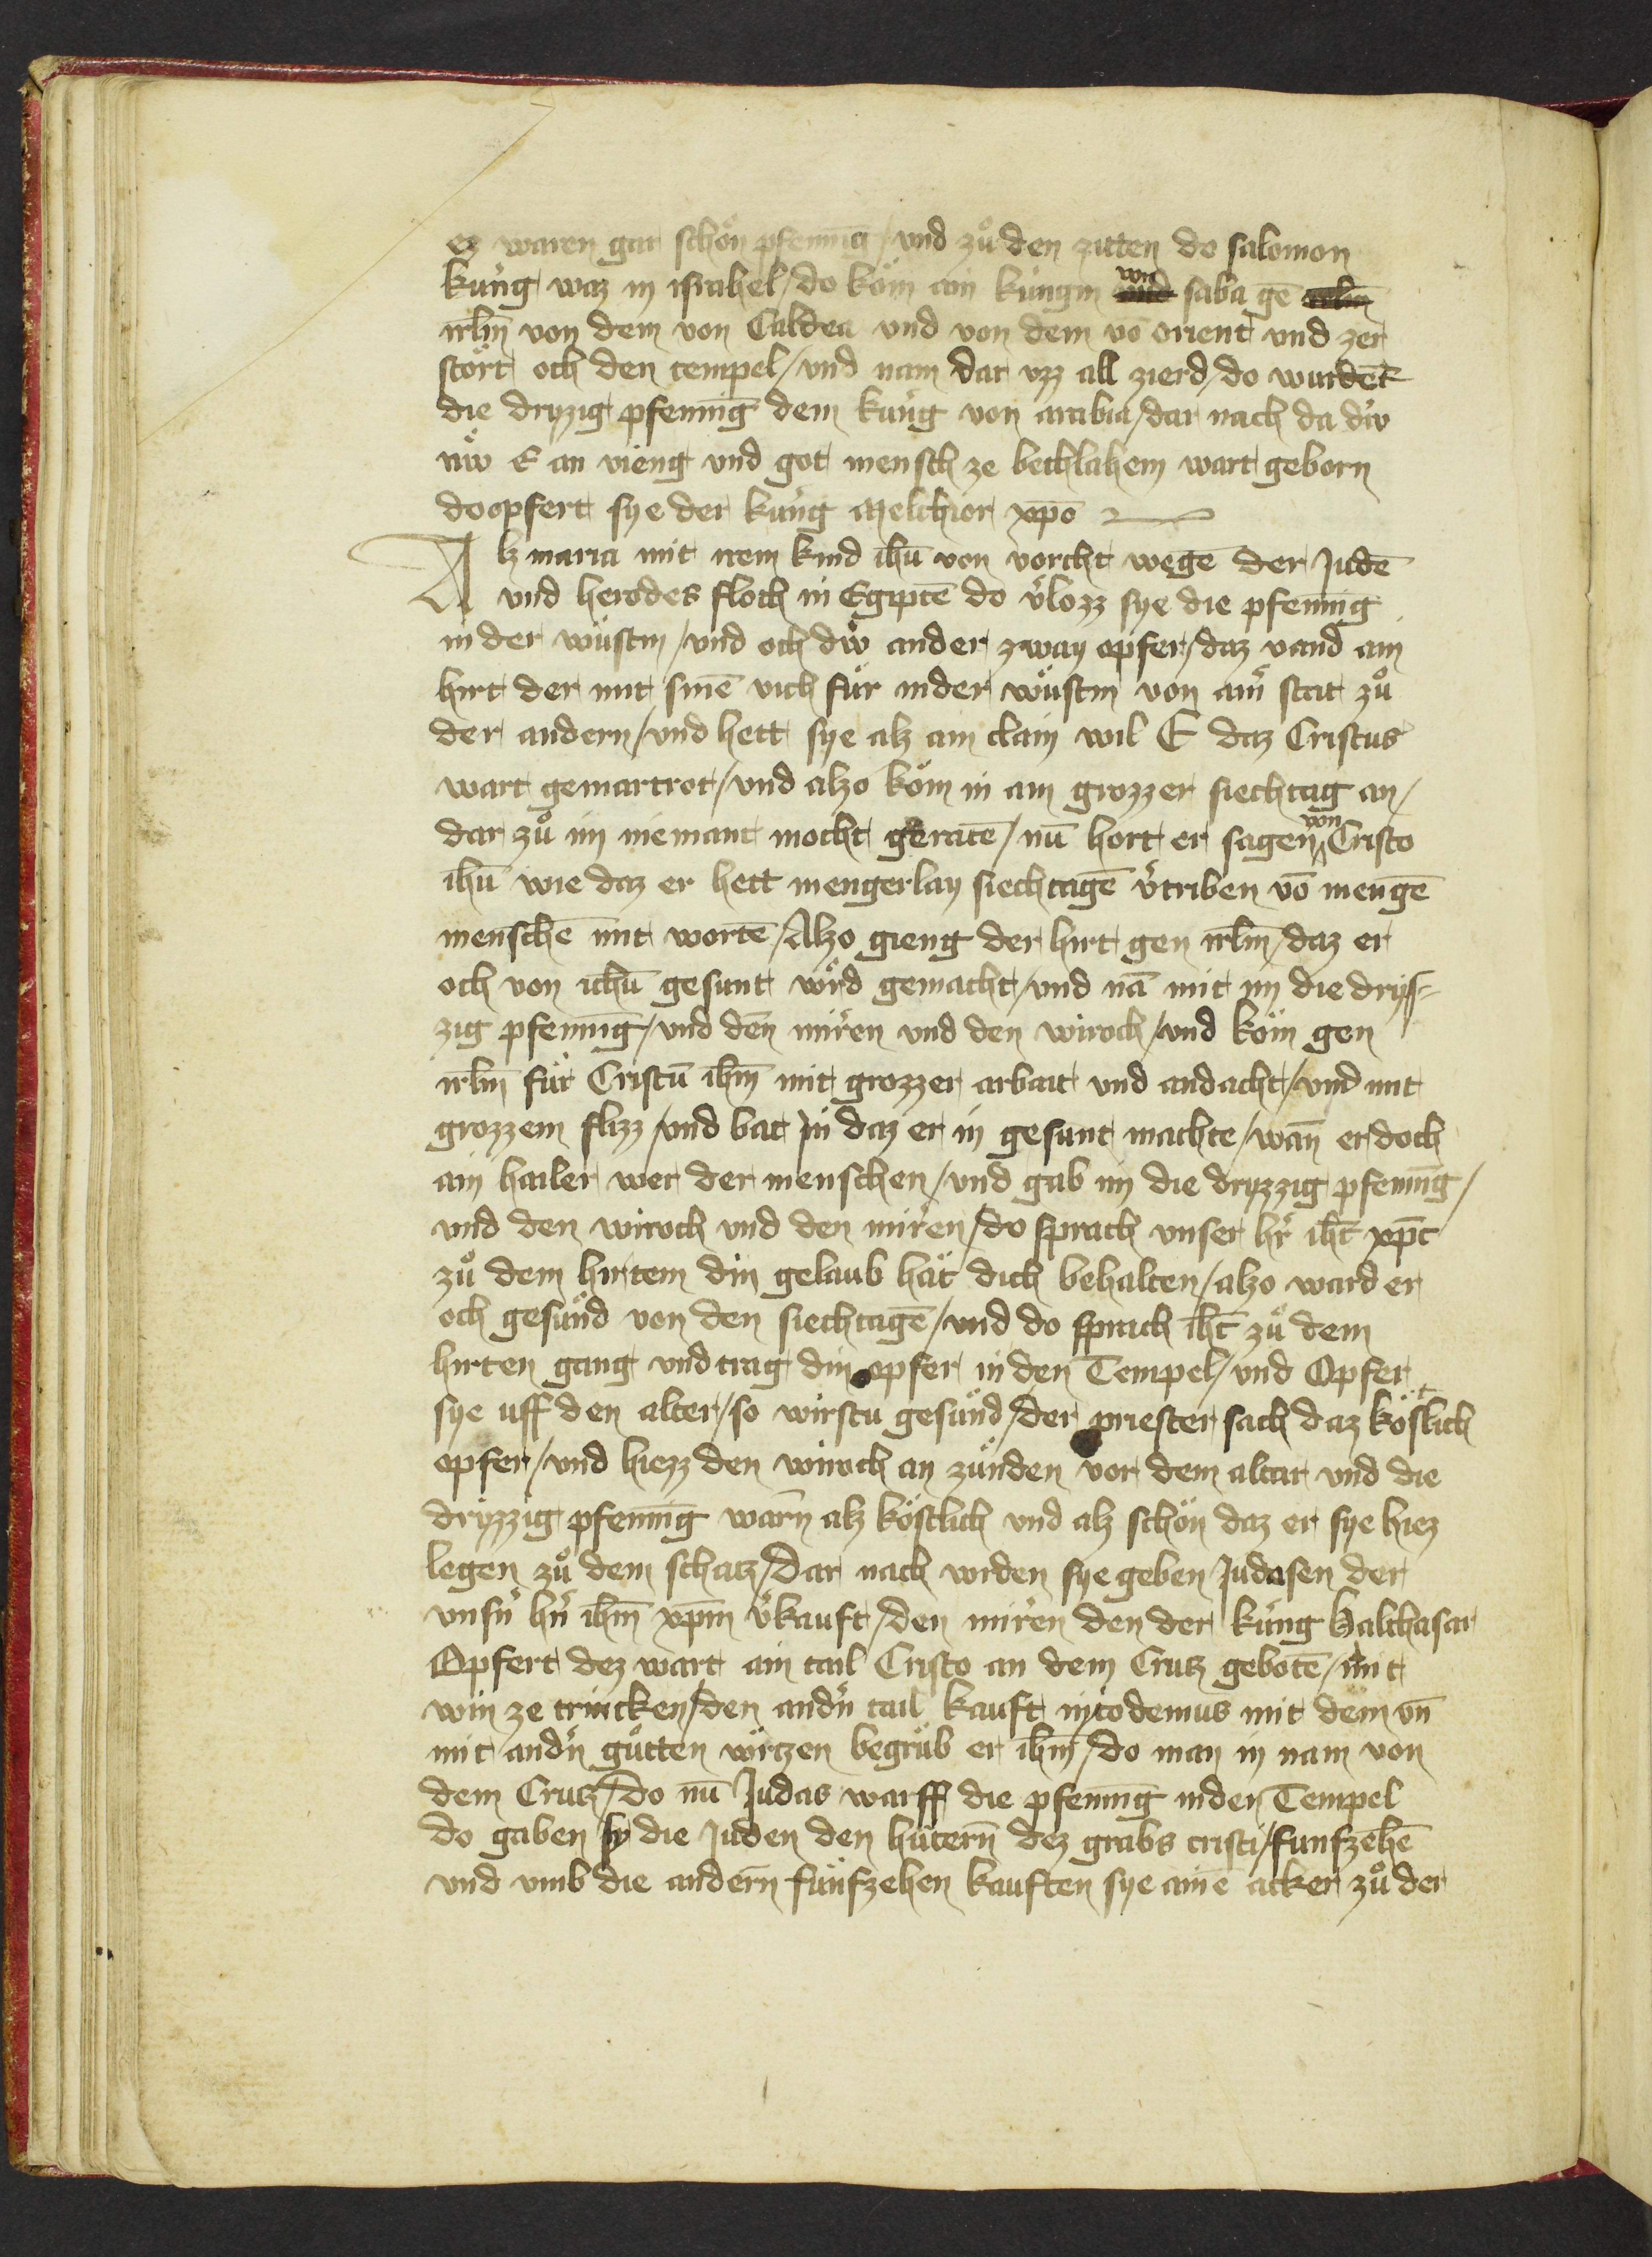 ez waren gar schön pfenīng / vnd zuͦ den zitten do salomon
kuͤng waz in israhel / do kom ain kuͤngin von saba gē
irlm̄ von dem von Caldea vnd von dem vō orient vnd zer
stört och den tempel / vnd nam dar vzz all zierd / do wurdēt
die dryzig pfenīng dem kuͤng von arabia / dar nach da dẘ
nẘ E an vieng vnd got mensch ze bethlahem wart geborn
do opfert sye der kuͤng Melchior xpō
Alz maria mit irem kind ihū von vorcht wegē der Judē
vnd herodes floch in Egiptē do v͛lozz sye die pfenīng
in der wuͤstin / vnd och dẘ ander zway opfer / daz vand ain
hirt der mit sinē vich fuͤr in der wuͤstin von ain͛ stat zuͦ
der andern / vnd hett sye alz ain clain wil E daz Cristus
wart gemartrot / vnd alzo kom in ain grozzer siechtag an /
dar zuͦ im niemant mocht geratē / nū hort er sagen von Cristo
ihū wie daz er hett mengerlay siechtagē v͛triben vō mengē
menschē mit wortē / Alzo gieng der hirt gen irlm̄ / daz er
och von ichū gesunt wͤrd gemacht / vnd nā mit im die drys-
zig pfenīng / vnd den mirͤen vnd den wiroch / vnd kom gen
irlm̄ fuͤr Cristū ihm̄ mit grozzer arbait vnd andacht / vnd mit
grozzem flizz / vnd bat in daz er in gesunt machte / wan̄ er doch
ain hailer wer der menschen / vnd gab im die dryzzig pfenīng /
vnd den wiroch vnd den mirͤen / do sprach vnser hr͛ ihc̄ xpc̄
zuͦ dem hirtem din gelaub hät dich behalten / alzo ward er
och gesuͤnd von den siechtagē / vnd do sprach ihc̄ zuͦ dem
hirten gang vnd trag din opfer in den Tempel / vnd Opfer
sye uff den alter / so wirstu gesuͤnd / der priester sach daz köstlich
opfer / vnd hiezz den wiroch an zuͤnden vor dem altar vnd die
dryzzig pfenīng warn̄ alz köstlich vnd alz schön daz er sye hiez
legen zuͦ dem schatz / Dar nach wrden sye geben Judasen der
vnsn͛ hn͛ ihm̄ xpm̄ v͛kauft / den mirͤen den der kuͤng Balthasar
Opfert dez wart ain tail Cristo an dem Crutz gebotē / mit
win ze trincken / den andn͛ tail kauft nicodemus mit dem vn̄
mit andn͛ guͤtten wͤrtzen begruͤb er ihm̄ / do man in nam von
dem Crutz / Do nū Judas warff die pfenīng in den Tempel
do gaben sy die Juden den huͤtern̄ dez grabs cristi / funfzehē
vnd vmb die andern̄ fuͤnfzehen kauften sye ainē acker zuͦ der